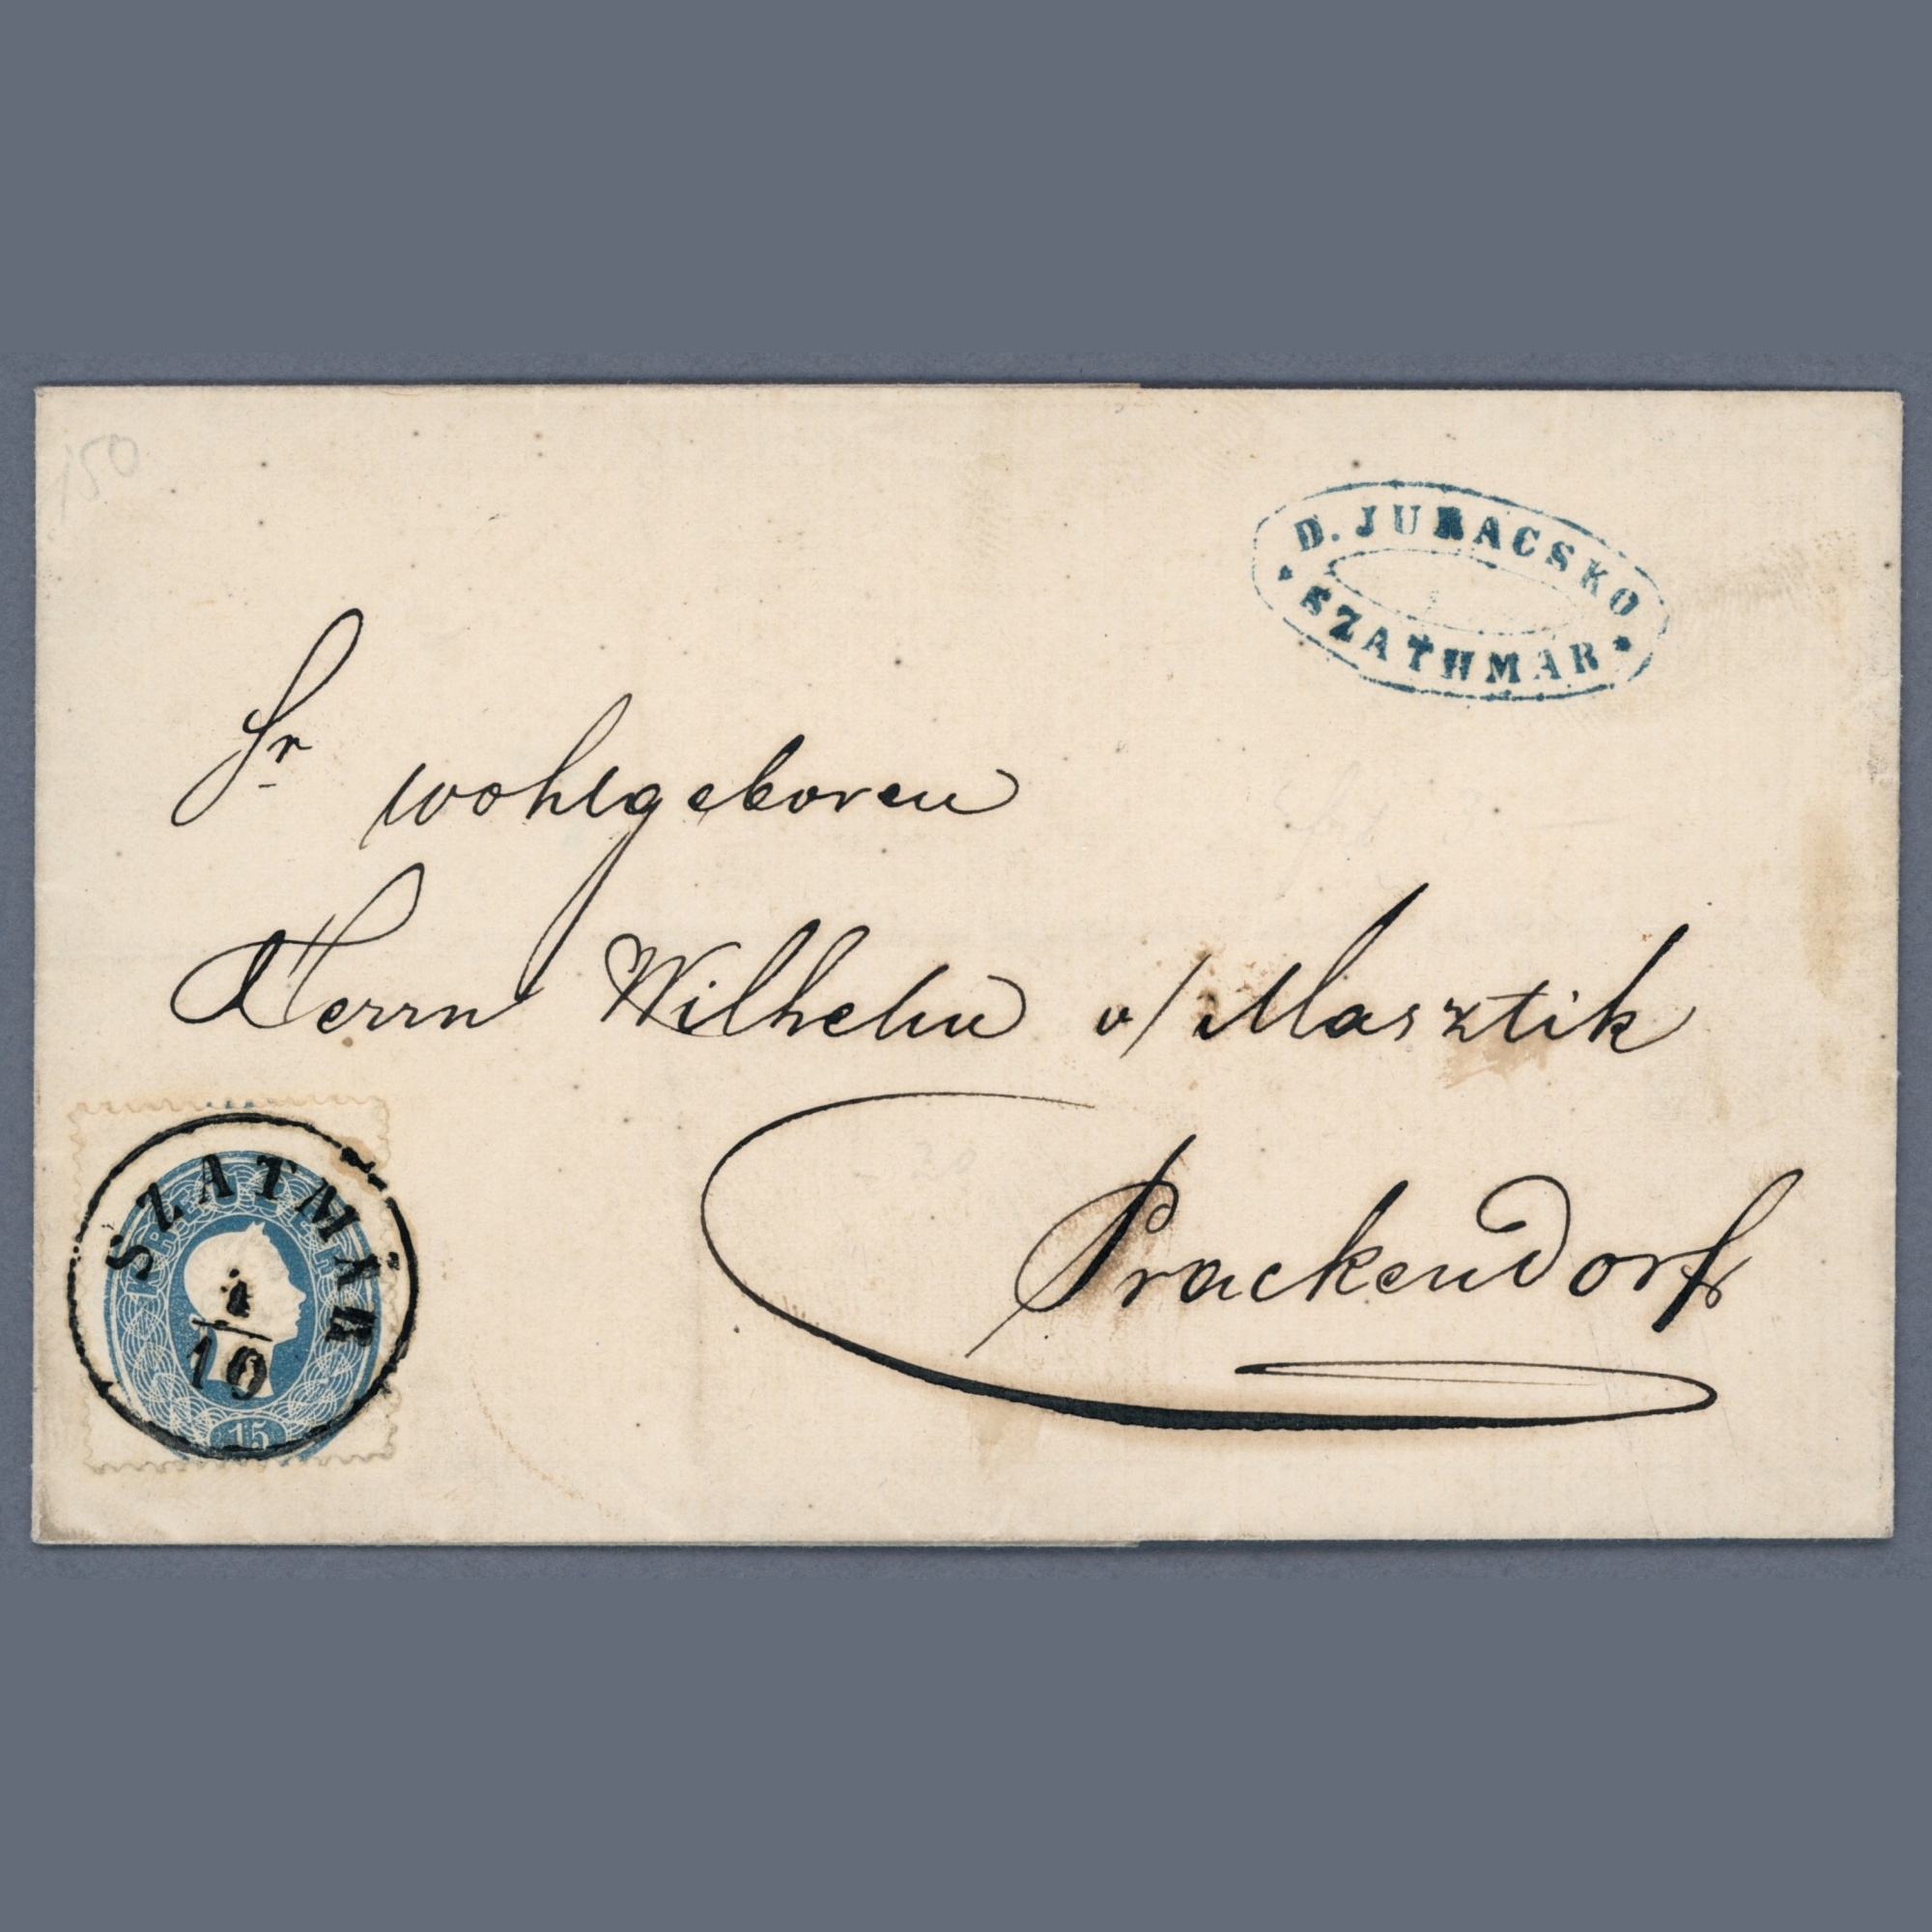 150
D. JURACSKO
SZATHMAR
Sr wohlgeboren
Herrn Wilhelm v/ Masztik
Prackendorf
SZATMÁR
1/10
15